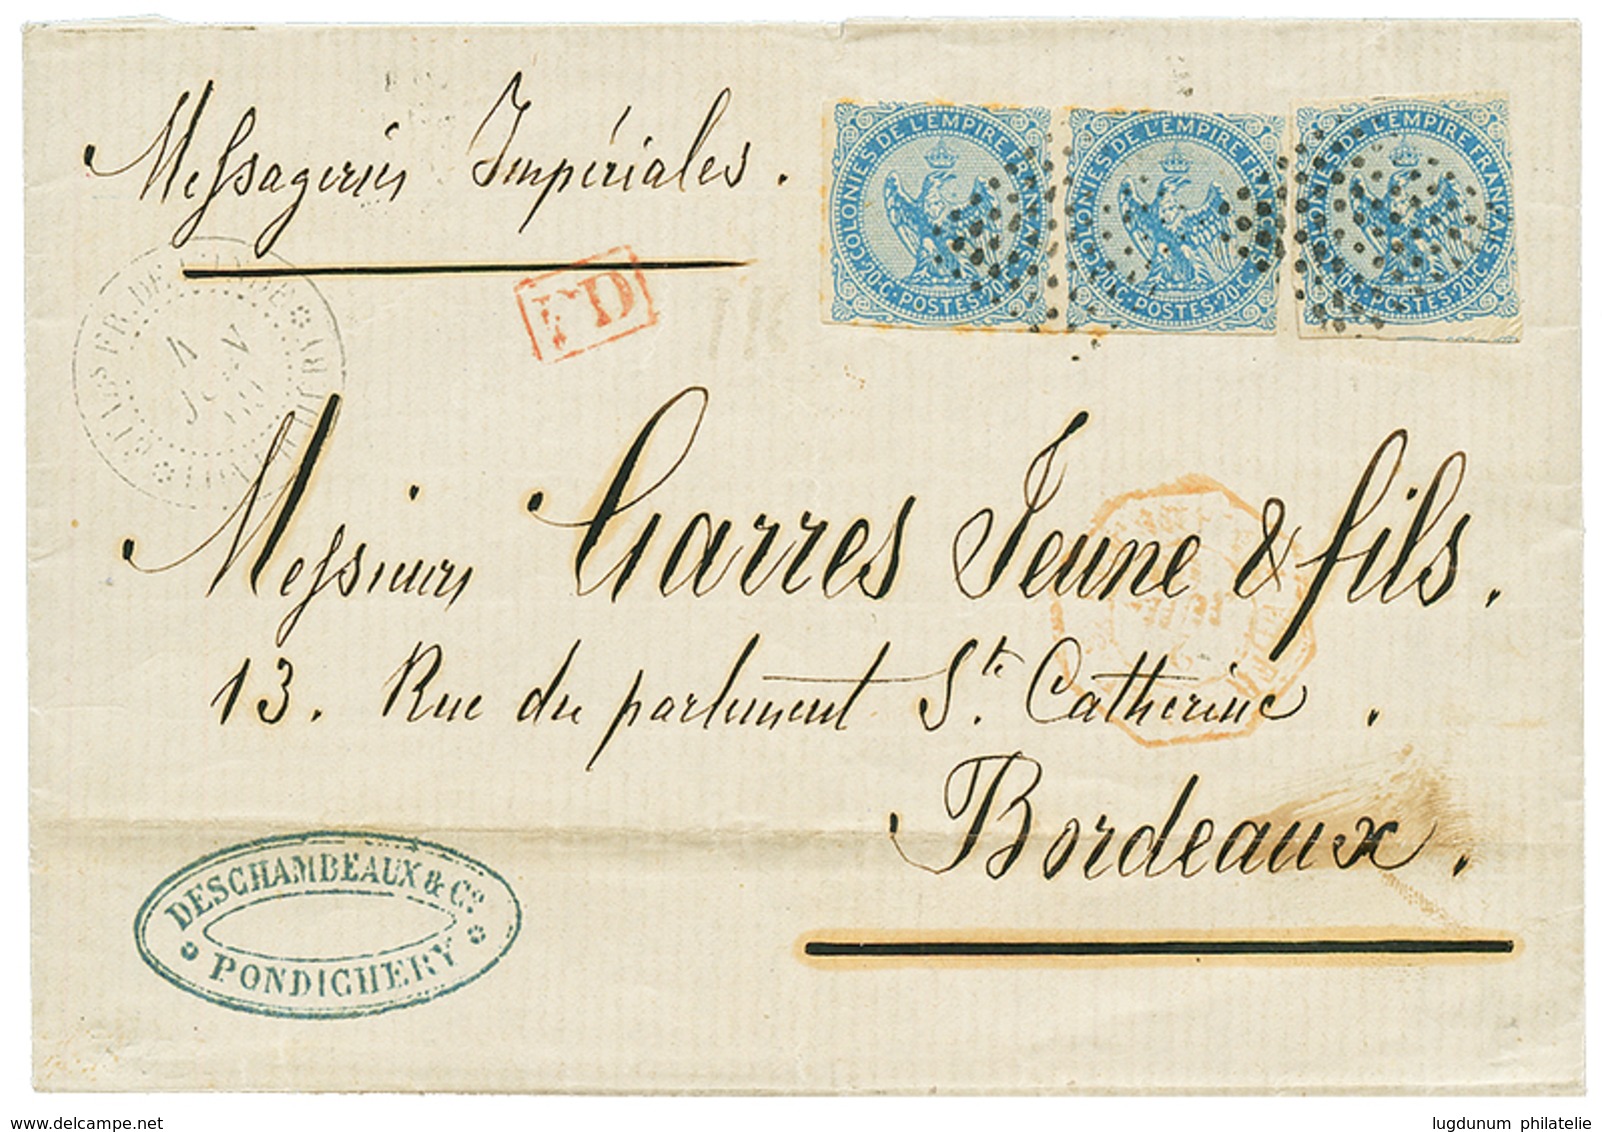 Messageries Impériales.
COLONIES DE L'EMPIRE FRANÇAIS
20.C. POSTES. 20.C.
COLONIES DE L'EMPIRE FRANÇAIS
20.C. POSTES. 20.C.
COLONIES DE L'EMPIRE FRANÇAIS
20.C. POSTES. 20.C.
ETAB. FR. DE L'INDE
4
PD
Messieurs Garres Jeune & fils.
13. Rue du parlement St. Catherine.
Bordeaux.
DESCHAMBEAUX & Co.
PONDICHERY
delcampe.net
lugdunum philatelie